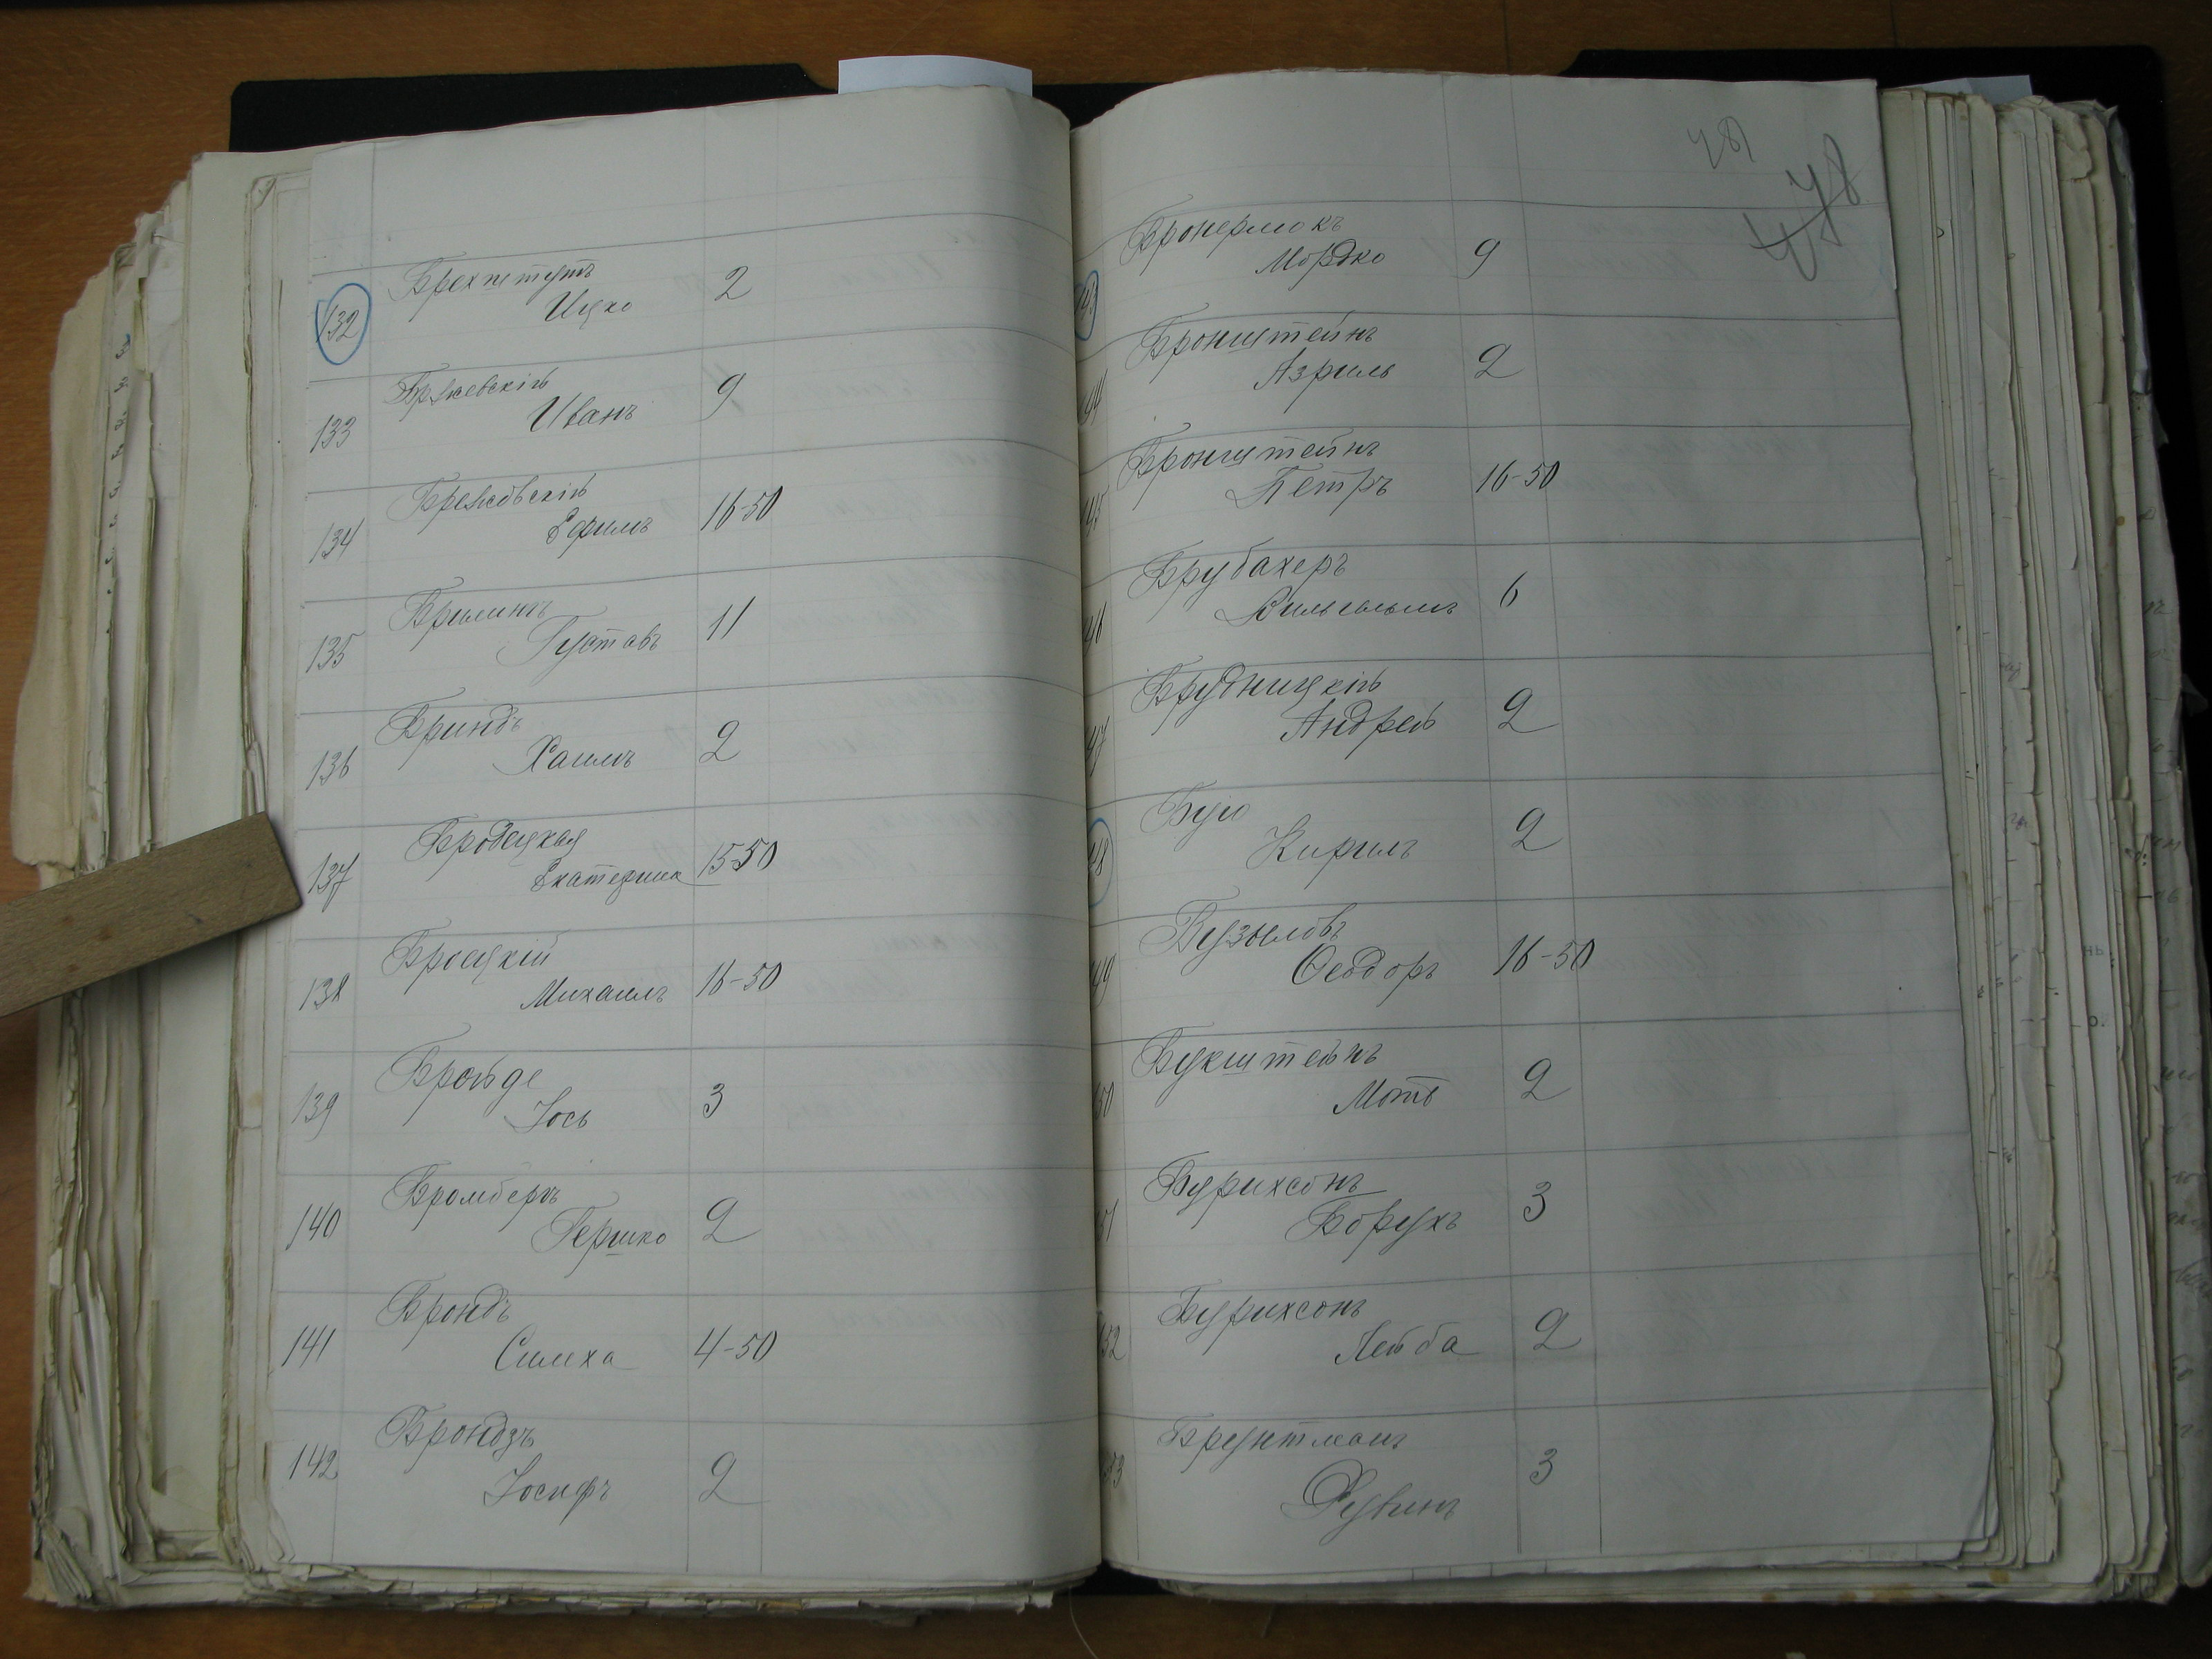 132 Брехштутъ
Ицко 2
133 Бржевскій
Иванъ 9
134 Брежовскій
Ефимъ 16-50
135 Брилингъ
Густавъ 11
136 Бриндъ
Хаимъ 2
137 Бродецкая
Екатерина 15-50
138 Броецкій
Михаилъ 16-50
139 Бройде
Іось 3
140 Бромбергъ
Гершко 2
141 Брондъ
Симха 4-50
142 Брондзъ
Іосифъ 2
48
478
Мордко 9
Бронштейнъ
Азриль 2
Бронштейнъ
Петръ 16-50
Брубахеръ
Вильгельмъ 6
Брудницкій
Андрей 2
Кирилъ 2
Бузыловъ
Ѳеодоръ 16-50
Букштейнъ
Моть 2
Бурихсонъ
Борухъ 3
152 Бурихсонъ
Лейба 2
Брунтманъ
Рувинъ 3